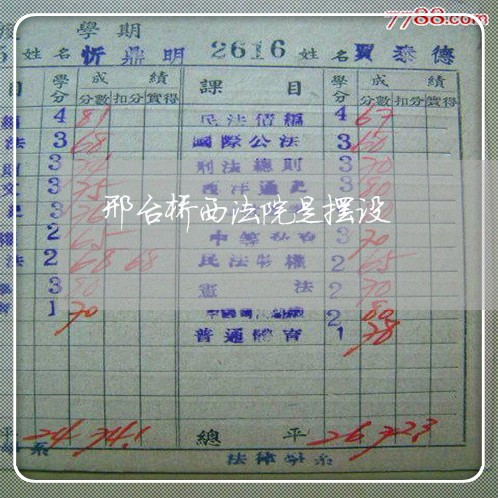 7788.com
學期
5 姓名 忻鼎明 2616 姓名 賈泰德
目 學分 成績 課目 學分 成績
分數 扣分 實得 分數 扣分 實得
4 81 民法債編 4 67
法 3 68 國際公法 3 60
3 刑法總則 3 70
文 3 75 西洋通史 3 80
3
2 65 3 70
法 2 68 68 民法物權 2 65
3 80 憲法 2 70
育 1 70 2 80
普通體育 1 78
邢台桥西法院是摆设
平 24 74.1 總平 26 72.3
系 法律學系